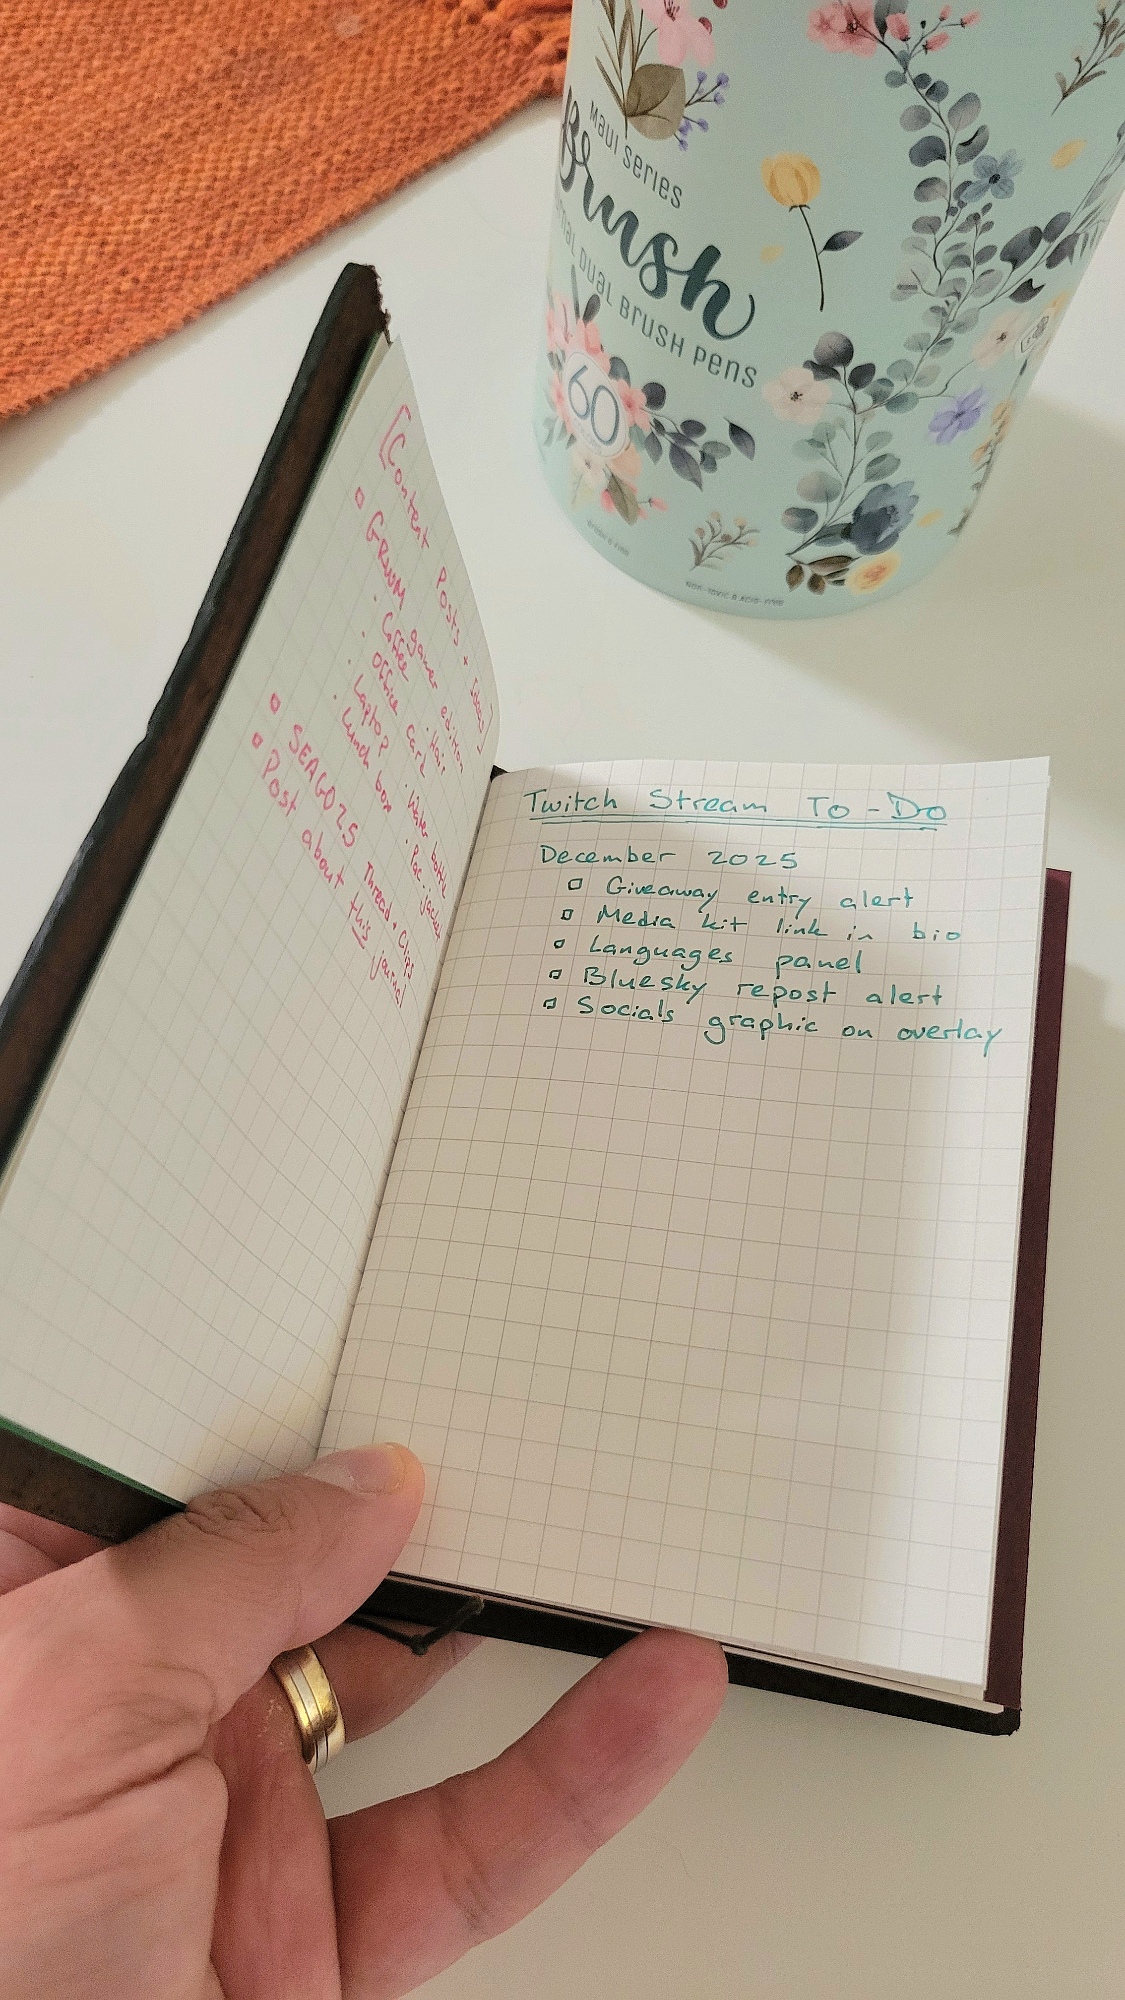 Maui Series
Brush
Dual Brush Pens
60
Non-Toxic & Acid-Free
[Content Posts + Ideas]
GRWM gamer edition
· Coffee · Hair
· Office card · Water bottle
· Laptop · Pac-jacket
· Lunch box
SEAGO25 Thread + Clips
Post about this journal
Twitch Stream To-Do
December 2025
Giveaway entry alert
Media kit link in bio
Languages panel
Bluesky repost alert
Socials graphic on overlay